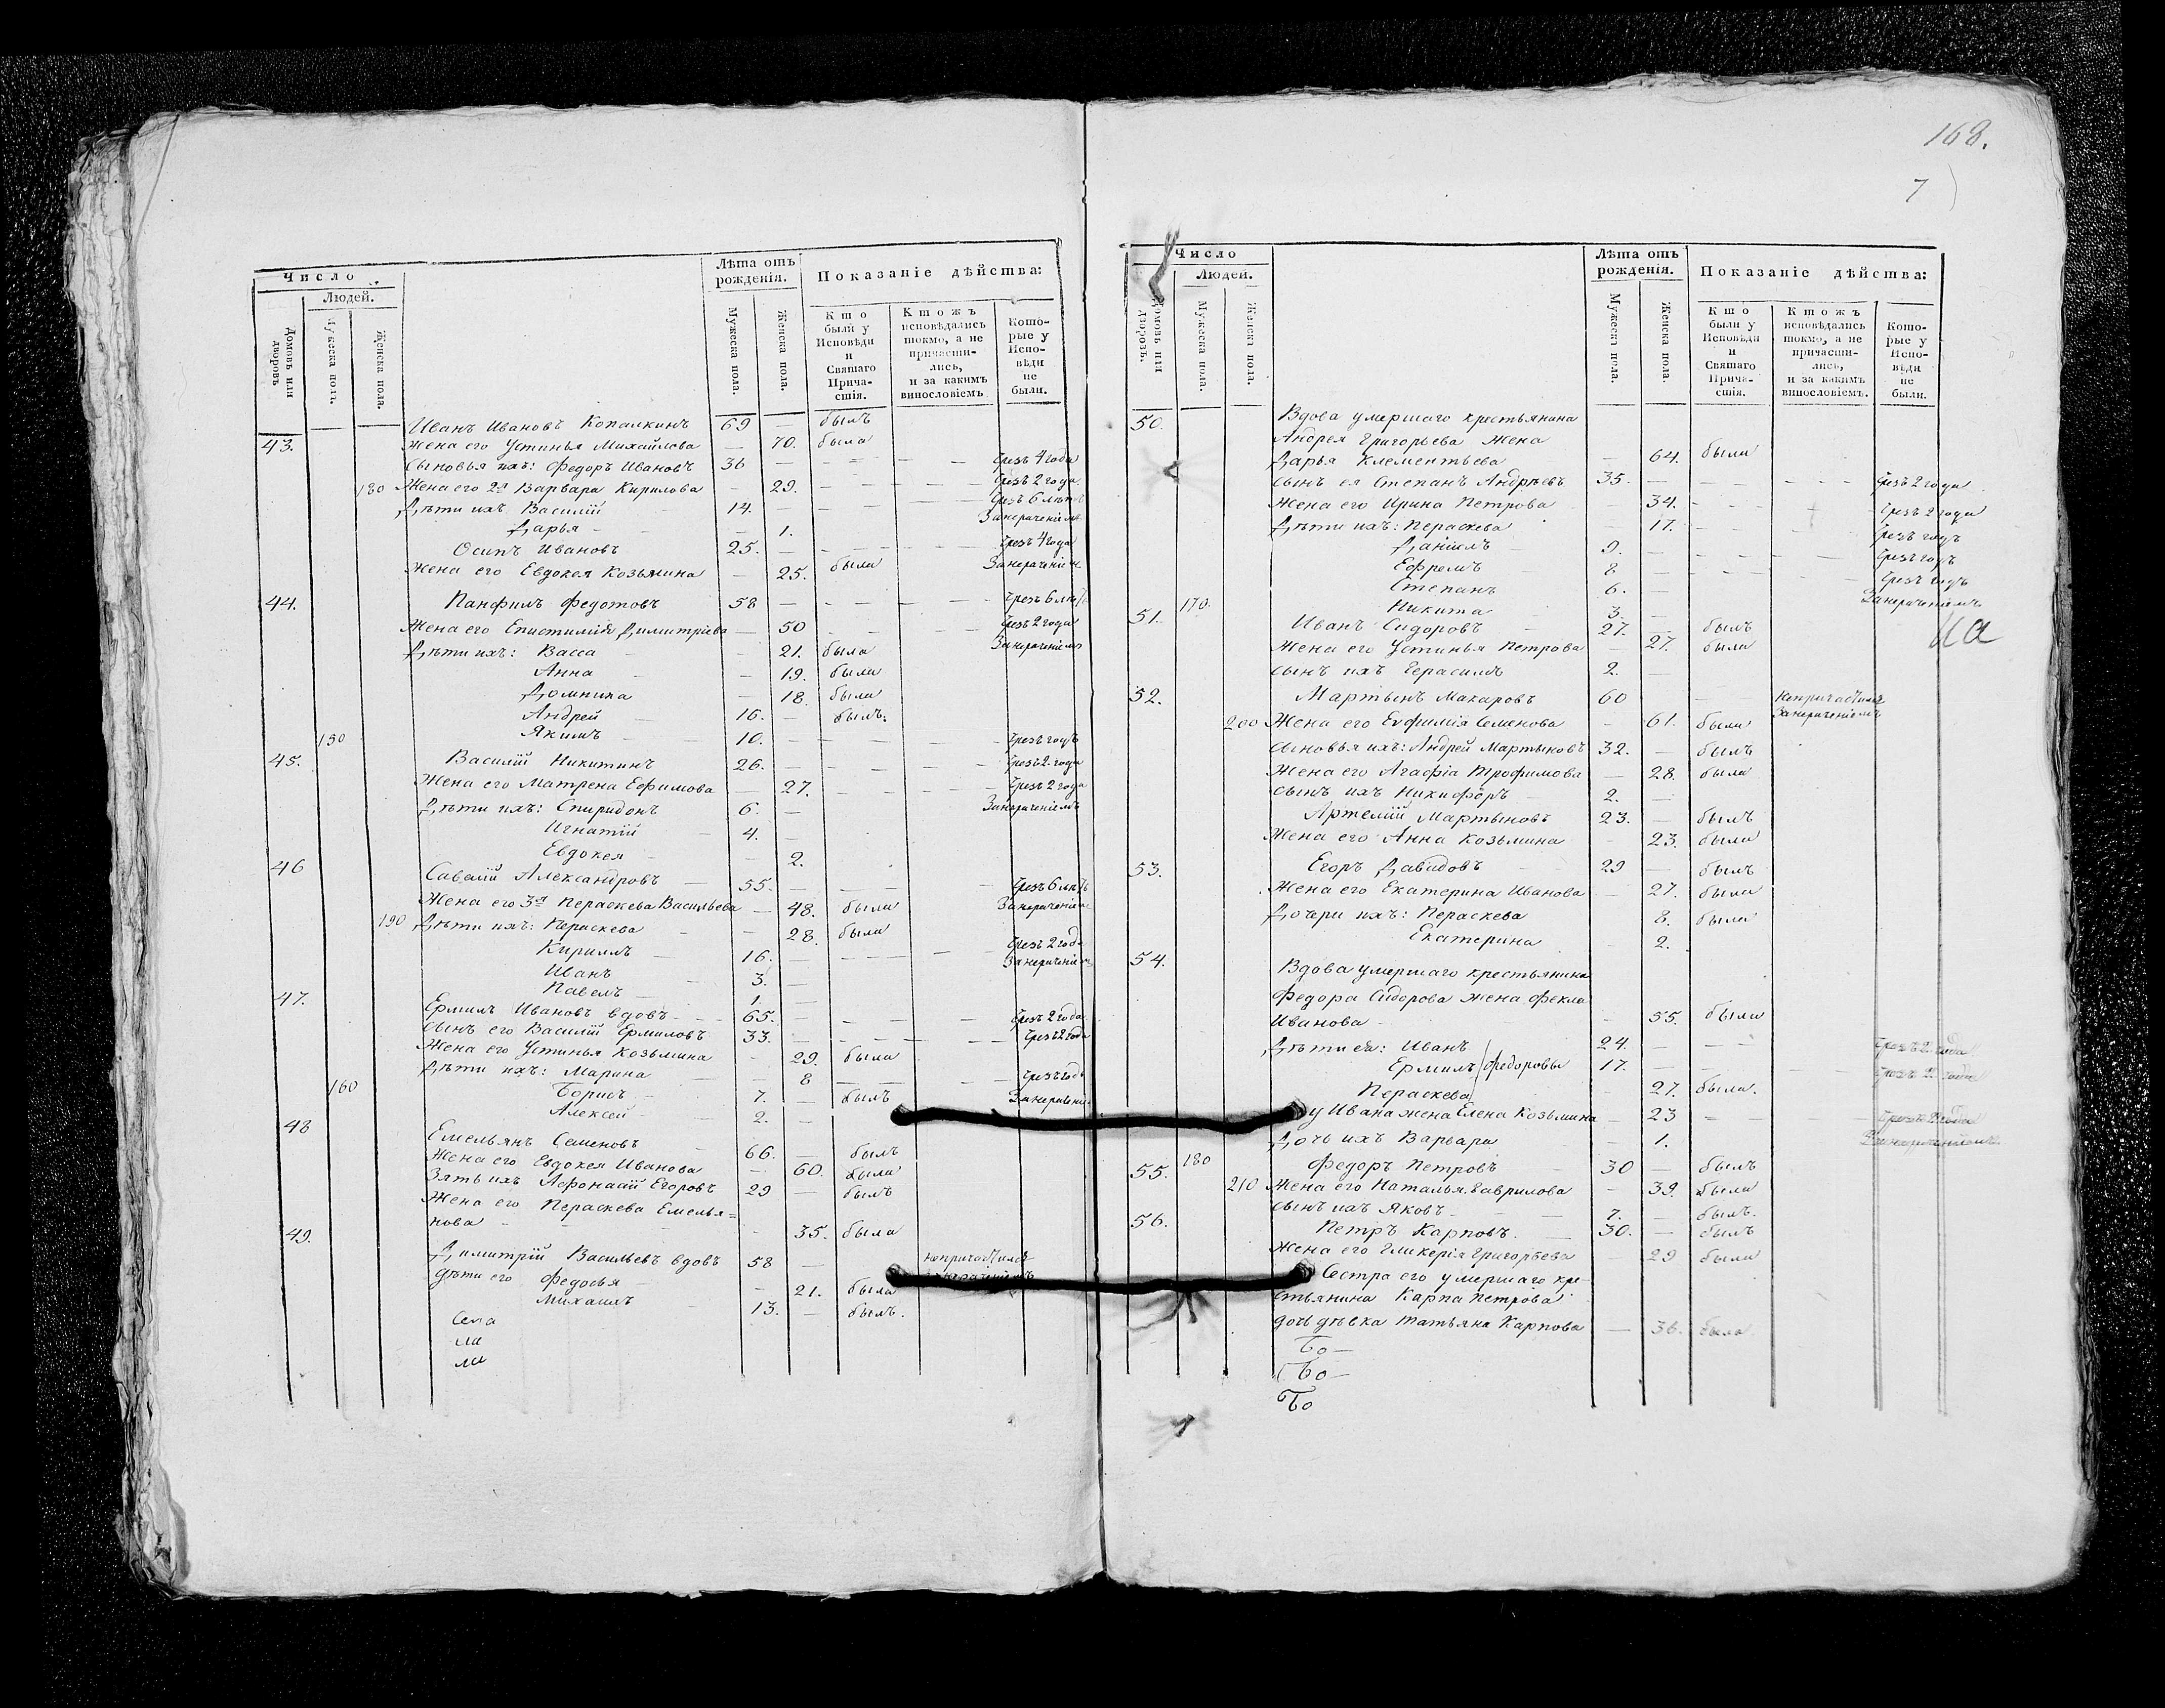 168.
7
Число
Людей.
Лѣта отъ рожденія.
Показаніе дѣйства:
Домовъ или дворовъ
Мужеска пола.
Женска пола.
Мужеска пола.
Женска пола.
Кто были у Исповѣди и Святаго Причастія.
Ктожъ исповѣдались токмо, а не причастились, и за какимъ винословіемъ
Которые у Исповѣди не были.
43. Иванъ Ивановъ Копалкинъ 69 — былъ
Жена его Устинья Михайлова — 70. была
Сыновья ихъ: Федоръ Ивановъ 36 — — — чрезъ 4 года
180 Жена его 2я Варвара Кирилова — 29. — — чрезъ 2 года
Дѣти ихъ Василій 14. — — — чрезъ 6 лѣтъ
Занераченіемъ
Дарья — 1.
Осипъ Ивановъ 25. — — — чрезъ 4 года
Жена его Евдокея Козьмина — 25. была Занераченіем
44. Панфилъ Федотовъ 58 — — — чрезъ 6 лѣтъ
Жена его Епистимія Димитріева — 50 — — чрезъ 2 года
Дѣти ихъ: Васса — 21. была Занераченіемъ
Анна — 19. была
Домника — 18. была
Андрей 16. — былъ.
150 Якимъ 10. — — — чрезъ годъ
45. Василій Никитинъ 26. — — — чрезъ 2. года
Жена его Матрена Ефимова — 27. — — чрезъ 2 года
Дѣти ихъ: Спиридонъ 6. — Занераченіемъ
Игнатій 4. —
Евдокея — 2.
46 Савелій Александровъ 55. — — — чрезъ 6 лѣтъ
Жена его 3я Пераскева Васильева — 48. была Занераченіе
190 Дѣти ихъ: Пераскева — 28. была
Кирилъ 16. — — — чрезъ 2 года
Иванъ 3. — Занераченіе
Павелъ 1. —
47. Ермилъ Ивановъ вдовъ 65. — — — чрезъ 2 года
Сынъ его Василій Ермиловъ 33. — — — чрезъ 2 года
Жена его Устинья Козьмина — 29. была
Дѣти ихъ: Марина — 8 — — чрезъ годъ
160 Борисъ 7. — былъ Занерачені
Алексей 2. —
48 Емельянъ Семеновъ 66. — былъ
Жена его Евдокея Иванова — 60. была
Зять ихъ Афонасій Егоровъ 29 — былъ
Жена его Пераскева Емелья=
нова — 35. была
49. Димитрій Васильевъ вдовъ 58 — непричастился
Дѣти его Федосья — 21. была
Михаилъ 13. — былъ.
Села
ли
ли
Число
Людей.
Лѣта отъ рожденія.
Показаніе дѣйства:
Домовъ или дворовъ.
Мужеска пола.
Женска пола.
Мужеска пола.
Женска пола.
Кто были у Исповѣди и Святаго Причастія.
Ктожъ исповѣдались токмо, а не причастились, и за какимъ винословіемъ.
Которые у Исповѣди не были.
50. Вдова умершаго крестьянина
Андрея Григорьева жена
Дарья Клементьева — 64. была
Сынъ ея Степанъ Андрѣевъ 35. — — — чрезъ 2 года
Жена его Ирина Петрова — 34. — — чрезъ 2 года
Дѣти ихъ: Пераскева — 17. — — чрезъ годъ
Даніилъ 9. — — — чрезъ годъ
Ефремъ 8 — — — чрезъ годъ
Степанъ 6. — Занераченіемъ
170. Никита 3. —
51. Иванъ Сидоровъ 27. — былъ
Жена его Устинья Петрова — 27. была
Сынъ ихъ Герасимъ 2. —
52. Мартынъ Макаровъ 60 — непричастился
200 Жена его Евфимія Семенова — 61. была Занераченіемъ
Сыновья ихъ: Андрей Мартыновъ 32. — былъ
Жена его Агафіа Трофимова — 28. была
Сынъ ихъ Никифоръ 2. —
Артемій Мартыновъ 23. — былъ
Жена его Анна Козьмина — 23. была
53. Егоръ Давидовъ 29 — былъ
Жена его Екатерина Иванова — 27. была
Дочери ихъ: Пераскева 8. была
Екатерина — 2.
54. Вдова умершаго крестьянина
Федора Сидорова жена Фекла
Иванова — 55. была
Дѣти ея: Иванъ 24. — — чрезъ 2 года
Ермилъ Федоровы 17. — — чрезъ 2 года
Пераскева — 27. была.
у Ивана жена Елена Козьмина — 23 — — чрезъ 2 года
Дочь ихъ Варвара — 1. Занераченіемъ
55. 180 Федоръ Петровъ 30 — былъ
210 Жена его Наталья Гаврилова — 39. была
Сынъ ихъ Яковъ 7. — былъ.
56. Петръ Карповъ. 30. — былъ
Жена его Гликерія Григорьева — 29 была
Сестра его умершаго кре-
стьянина Карпа Петрова
дочь дѣвка Татьяна Карпова — 36. была
Бо
Бо
Бо